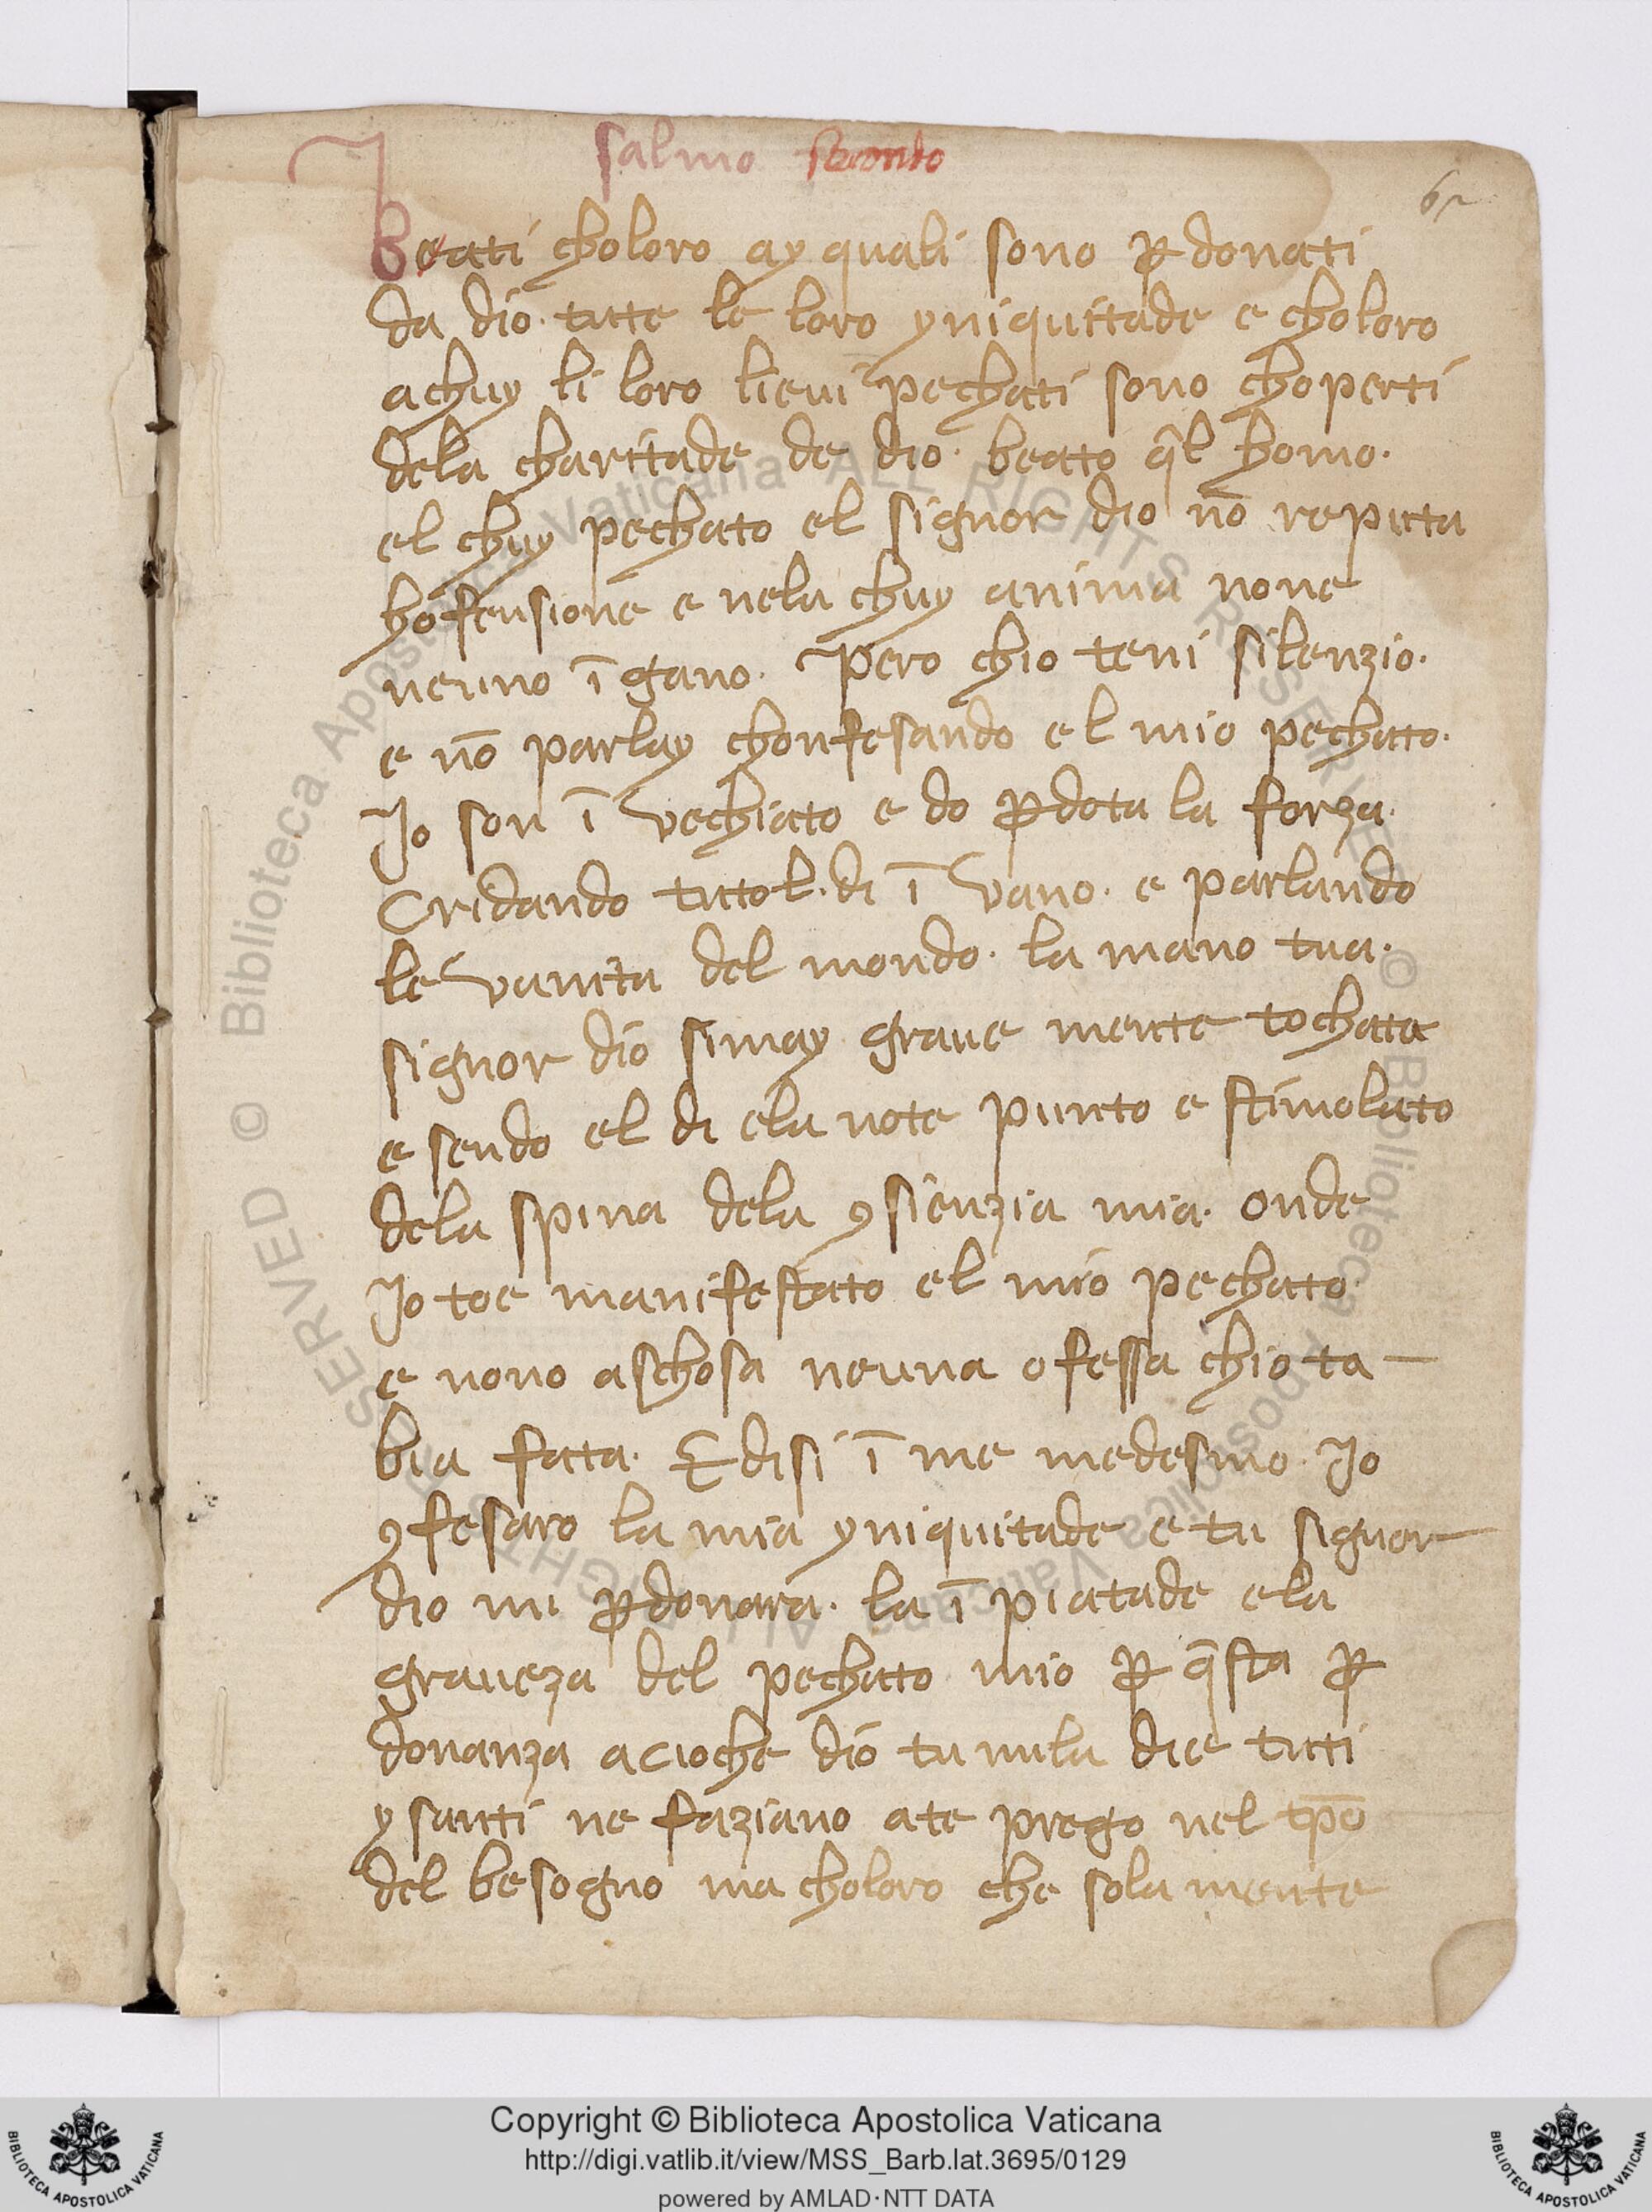 salmo secondo
62
beati choloro ay quali sono ꝑdonati
da dio · tute le loro yniquitade e choloro
achuy li loro lieui pechati sono choperti
dela charitade de dio · beato q̄l homo ·
el chuy pechato el signor dio nō reputa
hofensione e nela chuy anima none
neuno ī gano · Pero chio teni silenzio ·
e nō parlay chonfesando el mio pechato ·
Jo son ī vechiato e do ꝑdota la forza ·
Cridando tutol · di ī vano · e parlando
le vanita del mondo · la mano tua ·
signor dio simay graue mente tochata
e sendo el di ela note punto e stimolato
dela spina dela ꝯsienzia mia · onde
Jo toe manifestato el mio pechato ·
e nono aschosa neuna ofessa chio ta —
bia fata · E disi ī me medesmo · Jo
ꝯfesaro la mia yniquitade e tu signor
dio mi ꝑdonara · la ī piatade ela
graueza del pechato mio ꝑ q̄sta ꝑ
donanza acioche dio tu mila die tuti
y santi ne faziano ate prego nel tp̄o
del besogno ma choloro che sola mente
© Biblioteca Apostolica Vaticana ALL RIGHTS RESERVED
© Biblioteca Apostolica Vaticana ALL RIGHTS RESERVED
Copyright © Biblioteca Apostolica Vaticana
http://digi.vatlib.it/view/MSS_Barb.lat.3695/0129
powered by AMLAD·NTT DATA
BIBLIOTECA APOSTOLICA VATICANA
BIBLIOTECA APOSTOLICA VATICANA